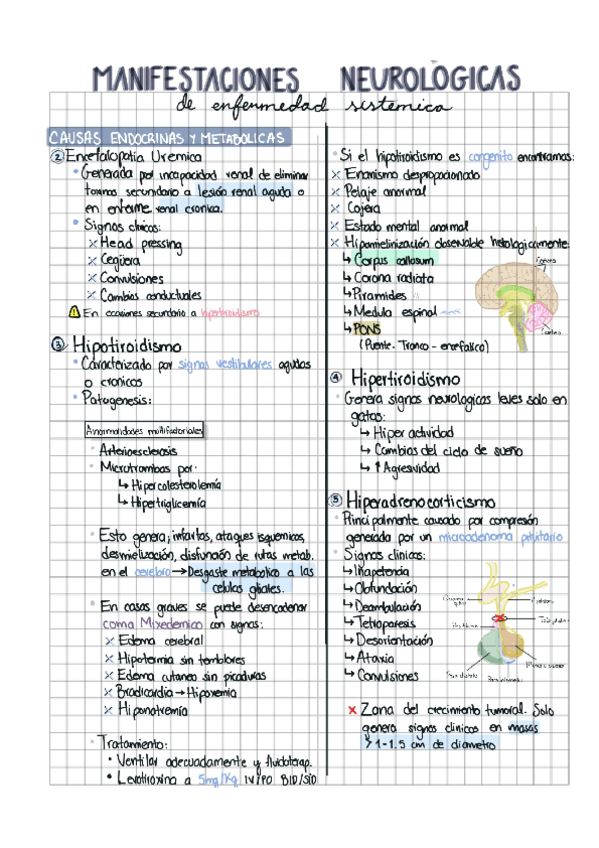 MANIFESTACIONES NEUROLÓGICAS
de enfermedad sistémica
CAUSAS ENDOCRINAS Y METABOLICAS
② Encefalopatia Uremica
• Generada por incapacidad renal de eliminar
toxinas secundario a lesión renal aguda o
en enferme. renal cronica.
• Signos clinicos:
× Head pressing
× Cegüera
× Convulsiones
× Cambios conductuales
⚠ En ocasiones secundario a hipotiroidismo
③ Hipotiroidismo
• Caracterizado por signos vestibulares agudos
o cronicos
• Patogenesis:
Anormalidades multifactoriales
• Arterioesclerosis
• Microtrombos por:
↳ Hipercolesterolemía
↳ Hipertriglicemía
• Esto genera; infartos, ataques isquemicos,
desmielización, disfunción de rutas metab.
en el cerebro → Desgaste metabolico a las
celulas gliales.
• En casos graves se puede desencadenar
coma Mixedemico con signos:
× Edema cerebral
× Hipotermia sin temblores
× Edema cutaneo sin picaduras
× Bradicardia → Hipoxemia
× Hiponatremía
• Tratamiento:
• Ventilar adecuadamente y fluidoterap.
• Levotiroxina a 5mg/Kg IV/PO BID/SID
• Si el hipotiroidismo es congenito encontramos:
× Enanismo desproporcionado
× Pelaje anormal
× Cojera
× Estado mental anormal
× Hipomielinización observable histologicamente
↳ Corpus callosum
↳ Corona radiata
↳ Piramides
↳ Medula espinal
↳ PONS
(Puente. Tronco - encefalico)
④ Hipertiroidismo
• Genera signos neurologicos leves solo en
gatos:
↳ Hiper actividad
↳ Cambios del ciclo de sueño
↳ ↑ Agresividad
⑤ Hiperadrenocorticismo
• Principalmente causado por compresión
generada por un microadenoma pituitario
• Signos clinicos:
↳ Inapetencia
↳ Obfundación
↳ Deambulación
↳ Tetraparesis
↳ Desorientación
↳ Ataxia
↳ Convulsiones
× Zona del crecimiento tumoral. Solo
genera signos clinicos en masas
> 1-1.5 cm de diametro